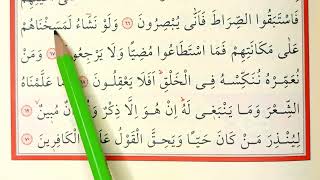 فَاسْتَبَقُوا الصِّرَاطَ فَاَنّٰى يُبْصِرُونَ ﴿٦٦﴾ وَلَوْ نَشَٓاءُ لَمَسَخْنَاهُمْ
عَلٰى مَكَانَتِهِمْ فَمَا اسْتَطَاعُوا مُضِيًّا وَلَا يَرْجِعُونَ ﴿٦٧﴾ وَمَنْ
نُعَمِّرْهُ نُنَكِّسْهُ فِى الْخَلْقِ اَفَلَا يَعْقِلُونَ ﴿٦٨﴾ وَمَا عَلَّمْنَاهُ
الشِّعْرَ وَمَا يَنْبَغٖى لَهُ اِنْ هُوَ اِلَّا ذِكْرٌ وَقُرْاٰنٌ مُبٖينٌ ﴿٦٩﴾
لِيُنْذِرَ مَنْ كَانَ حَيًّا وَيَحِقَّ الْقَوْلُ عَلَى الْكَافِرٖينَ ﴿٧٠﴾